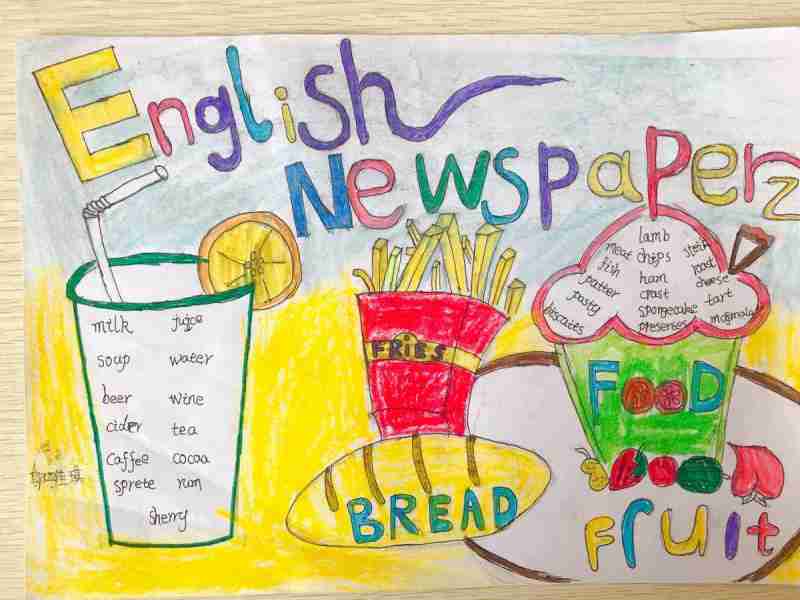 English
Newspaper
milk juice
soup water
beer wine
cider tea
caffee cocoa
sprete run
sherry
FRiES
BREAD
lamb
meat chips steak
fish ham roast
patter crast cheese
pasty spongecake tart
biscuits preserses
FOOD
Fruit